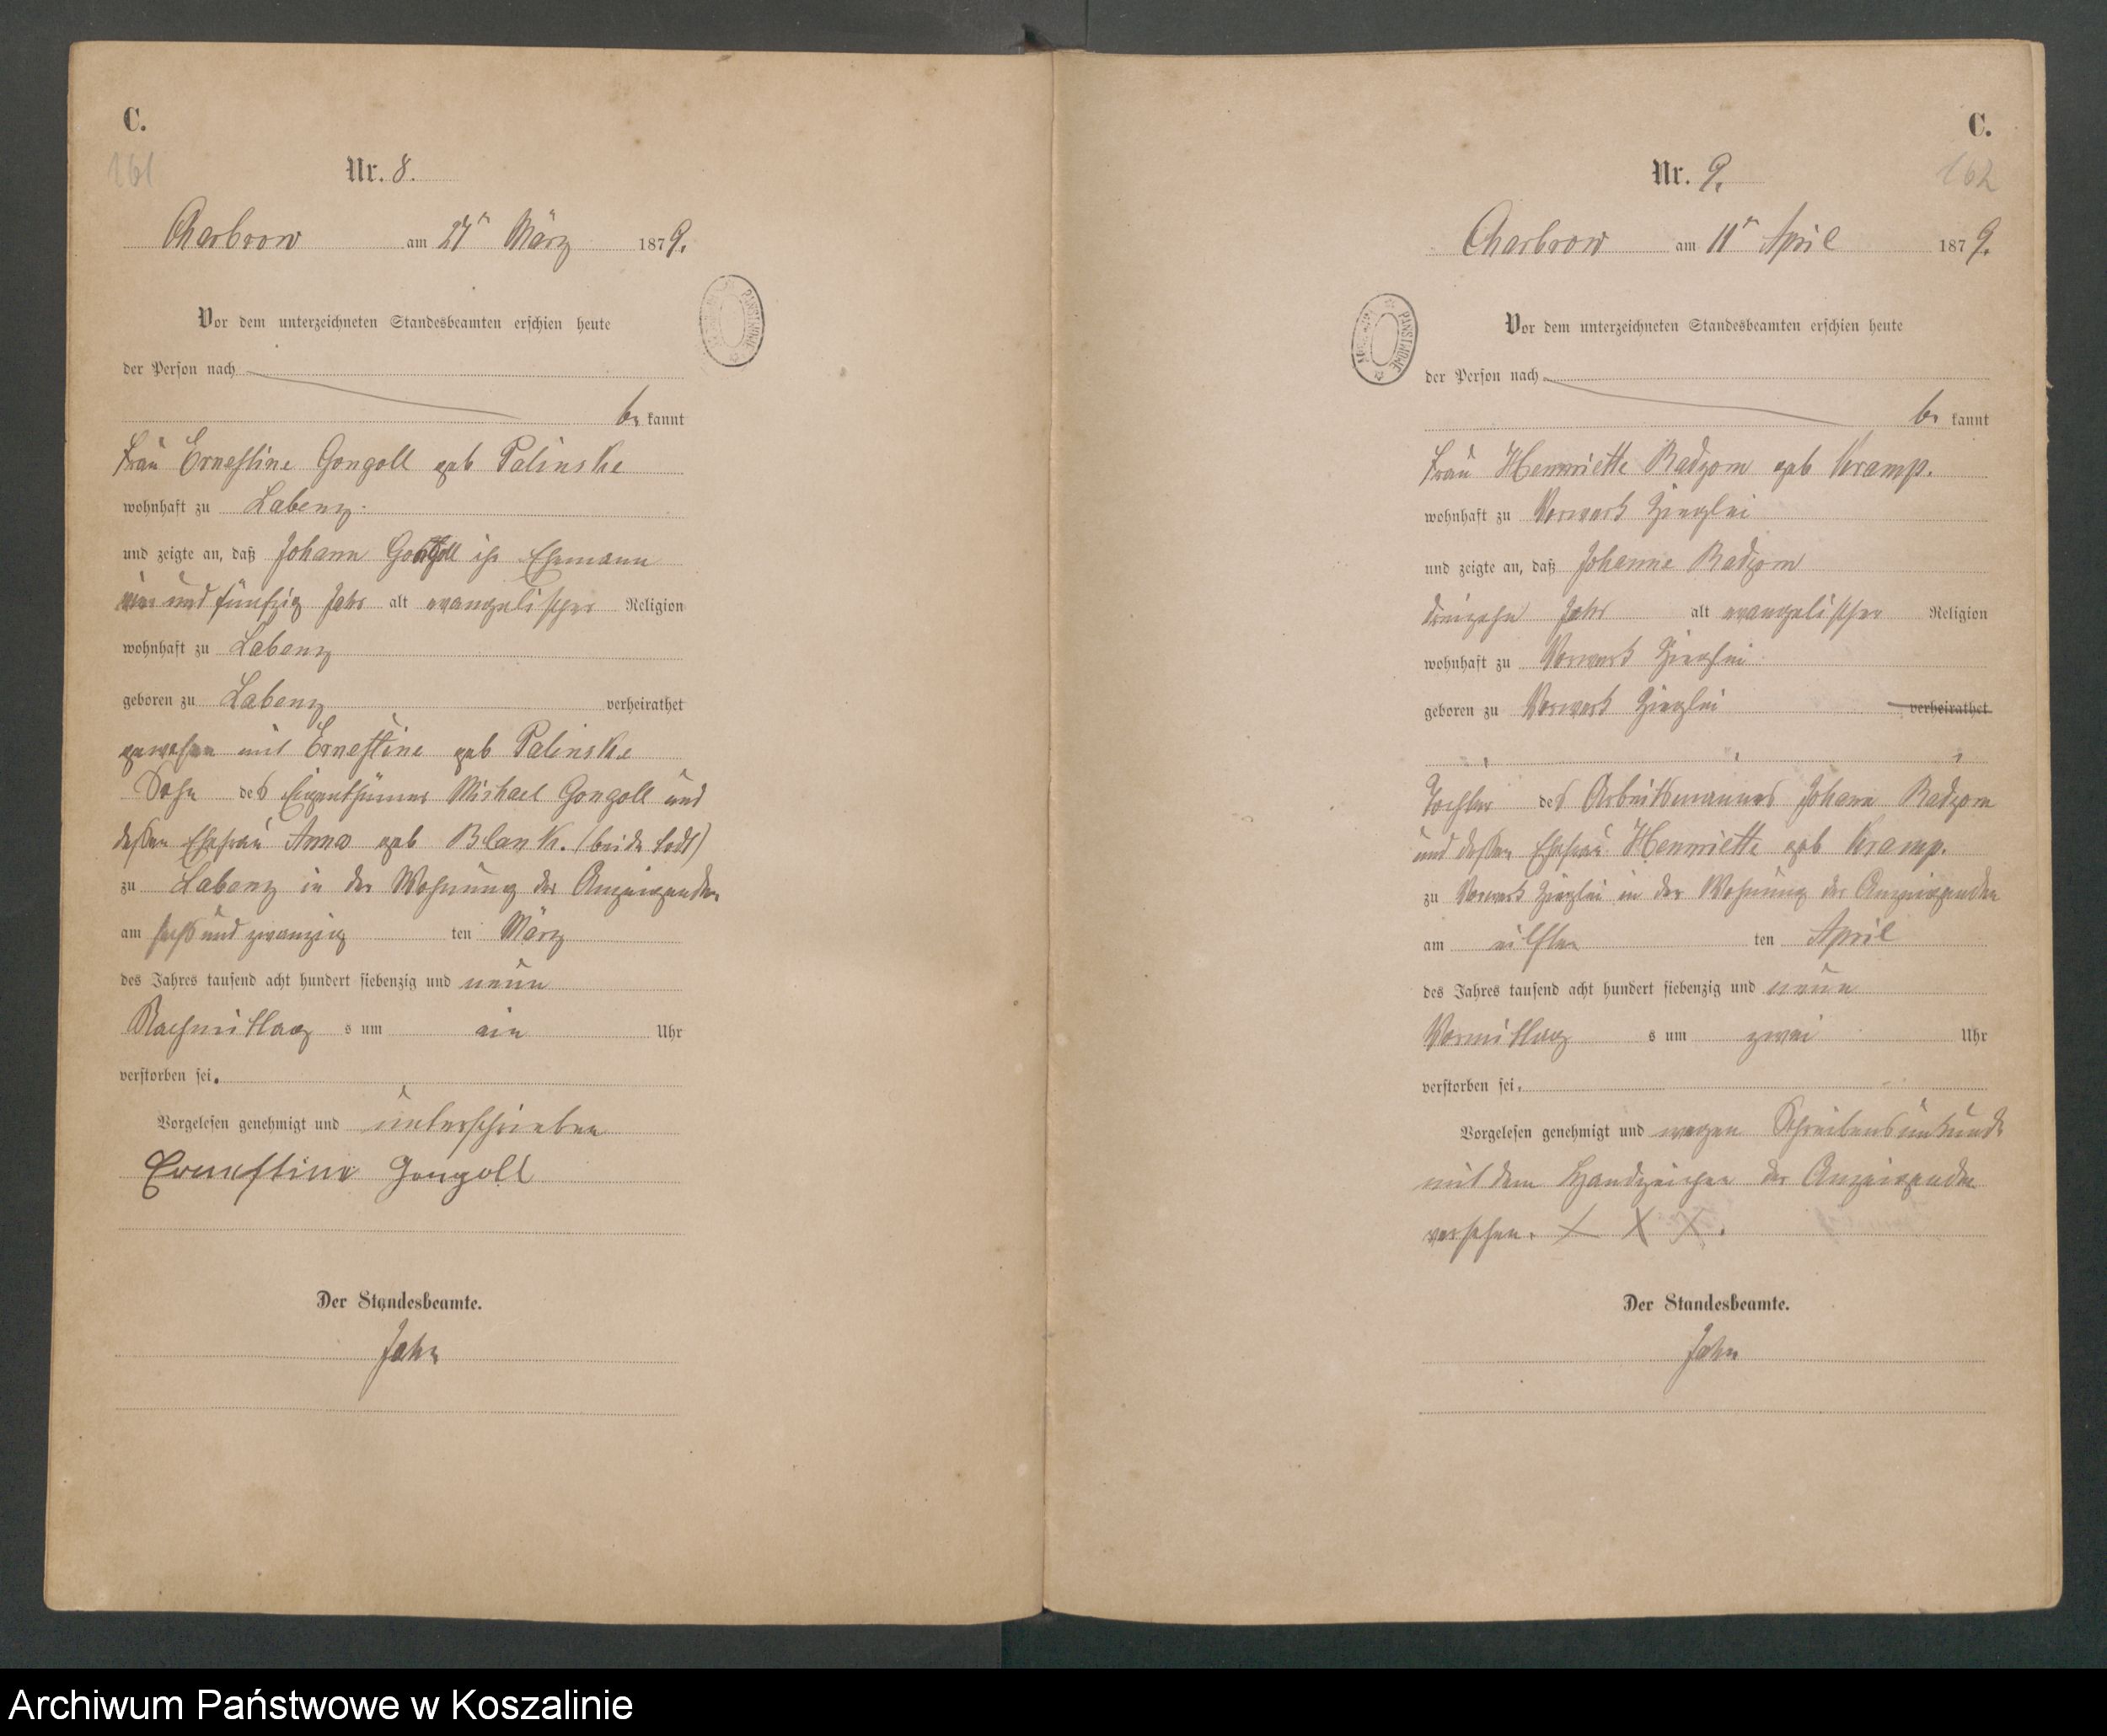 C.
161
Nr. 8.
Charbrow am 27ᵗᵉⁿ März 1879.
Vor dem unterzeichneten Standesbeamten erschien heute
der Person nach
be kannt
Frau Ernestine Gongoll geb Palinske
wohnhaft zu Labenz.
und zeigte an, daß Johann Gongoll ihr Ehemann
und fünfzig Jahr alt evangelischer Religion
wohnhaft zu Labenz
geboren zu Labenz verheirathet
gewesen mit Ernestine geb Palinske
Sohn des Eigenthümers Michael Gongoll und
dessen Ehefrau Anna geb Blank. (beide todt)
zu Labenz in der Wohnung der Anzeigenden
am sechs und zwanzig ten März
des Jahres tausend acht hundert siebenzig und neun
Nachmittag s um ein Uhr
verstorben sei.
Vorgelesen genehmigt und unterschrieben
Ernestine Gongoll
Der Standesbeamte.
Jahn
C.
162
Nr. 9.
Charbrow am 11ᵗᵉⁿ April 1879.
Vor dem unterzeichneten Standesbeamten erschien heute
der Person nach
be kannt
Frau Henriette Radzom geb Kramp.
wohnhaft zu Vorwerk Zieglei
und zeigte an, daß Johanne Radzom
dreizehn Jahr alt evangelischer Religion
wohnhaft zu Vorwerk Zieglei
geboren zu Vorwerk Zieglei verheirathet
Tochter des Arbeitsmannes Johann Radzom
und dessen Ehefrau Henriette geb Kramp.
zu Vorwerk Zieglei in der Wohnung der Anzeigenden
am eilften ten April
des Jahres tausend acht hundert siebenzig und neun
Vormittag s um zwei Uhr
verstorben sei.
Vorgelesen genehmigt und wegen Schreibensunkunde
mit dem Handzeichen der Anzeigenden
versehen. X X X.
Der Standesbeamte.
Jahn
PAŃSTWOWE
Archiwum Państwowe w Koszalinie